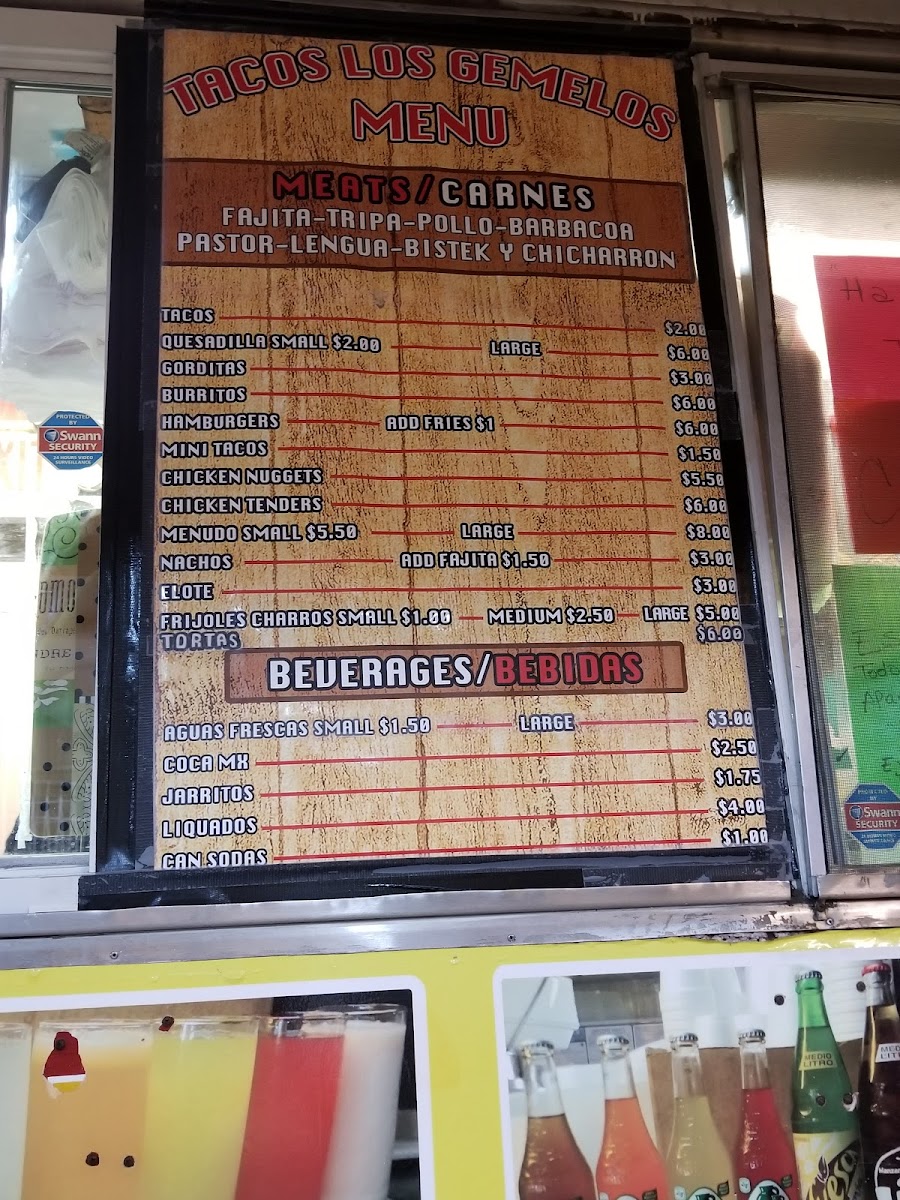 TACOS LOS GEMELOS
MENU
MEATS/CARNES
FAJITA-TRIPA-POLLO-BARBACOA
PASTOR-LENGUA-BISTEK Y CHICHARRON
TACOS $2.00
QUESADILLA SMALL $2.00 LARGE $6.00
GORDITAS $3.00
BURRITOS $6.00
HAMBURGERS ADD FRIES $1 $6.00
MINI TACOS $1.50
CHICKEN NUGGETS $5.50
CHICKEN TENDERS $6.00
MENUDO SMALL $5.50 LARGE $8.00
NACHOS ADD FAJITA $1.50 $3.00
ELOTE $3.00
FRIJOLES CHARROS SMALL $1.00 MEDIUM $2.50 LARGE $5.00
TORTAS $6.00
BEVERAGES/BEBIDAS
AGUAS FRESCAS SMALL $1.50 LARGE $3.00
COCA MX $2.50
JARRITOS $1.75
LIQUADOS $4.00
CAN SODAS $1.00
PROTECTED
BY
Swann
SECURITY
24 HOURS VIDEO
SURVEILLANCE
Ha
PROTECTED
BY
Swann
SECURITY
MEDIO
LITRO